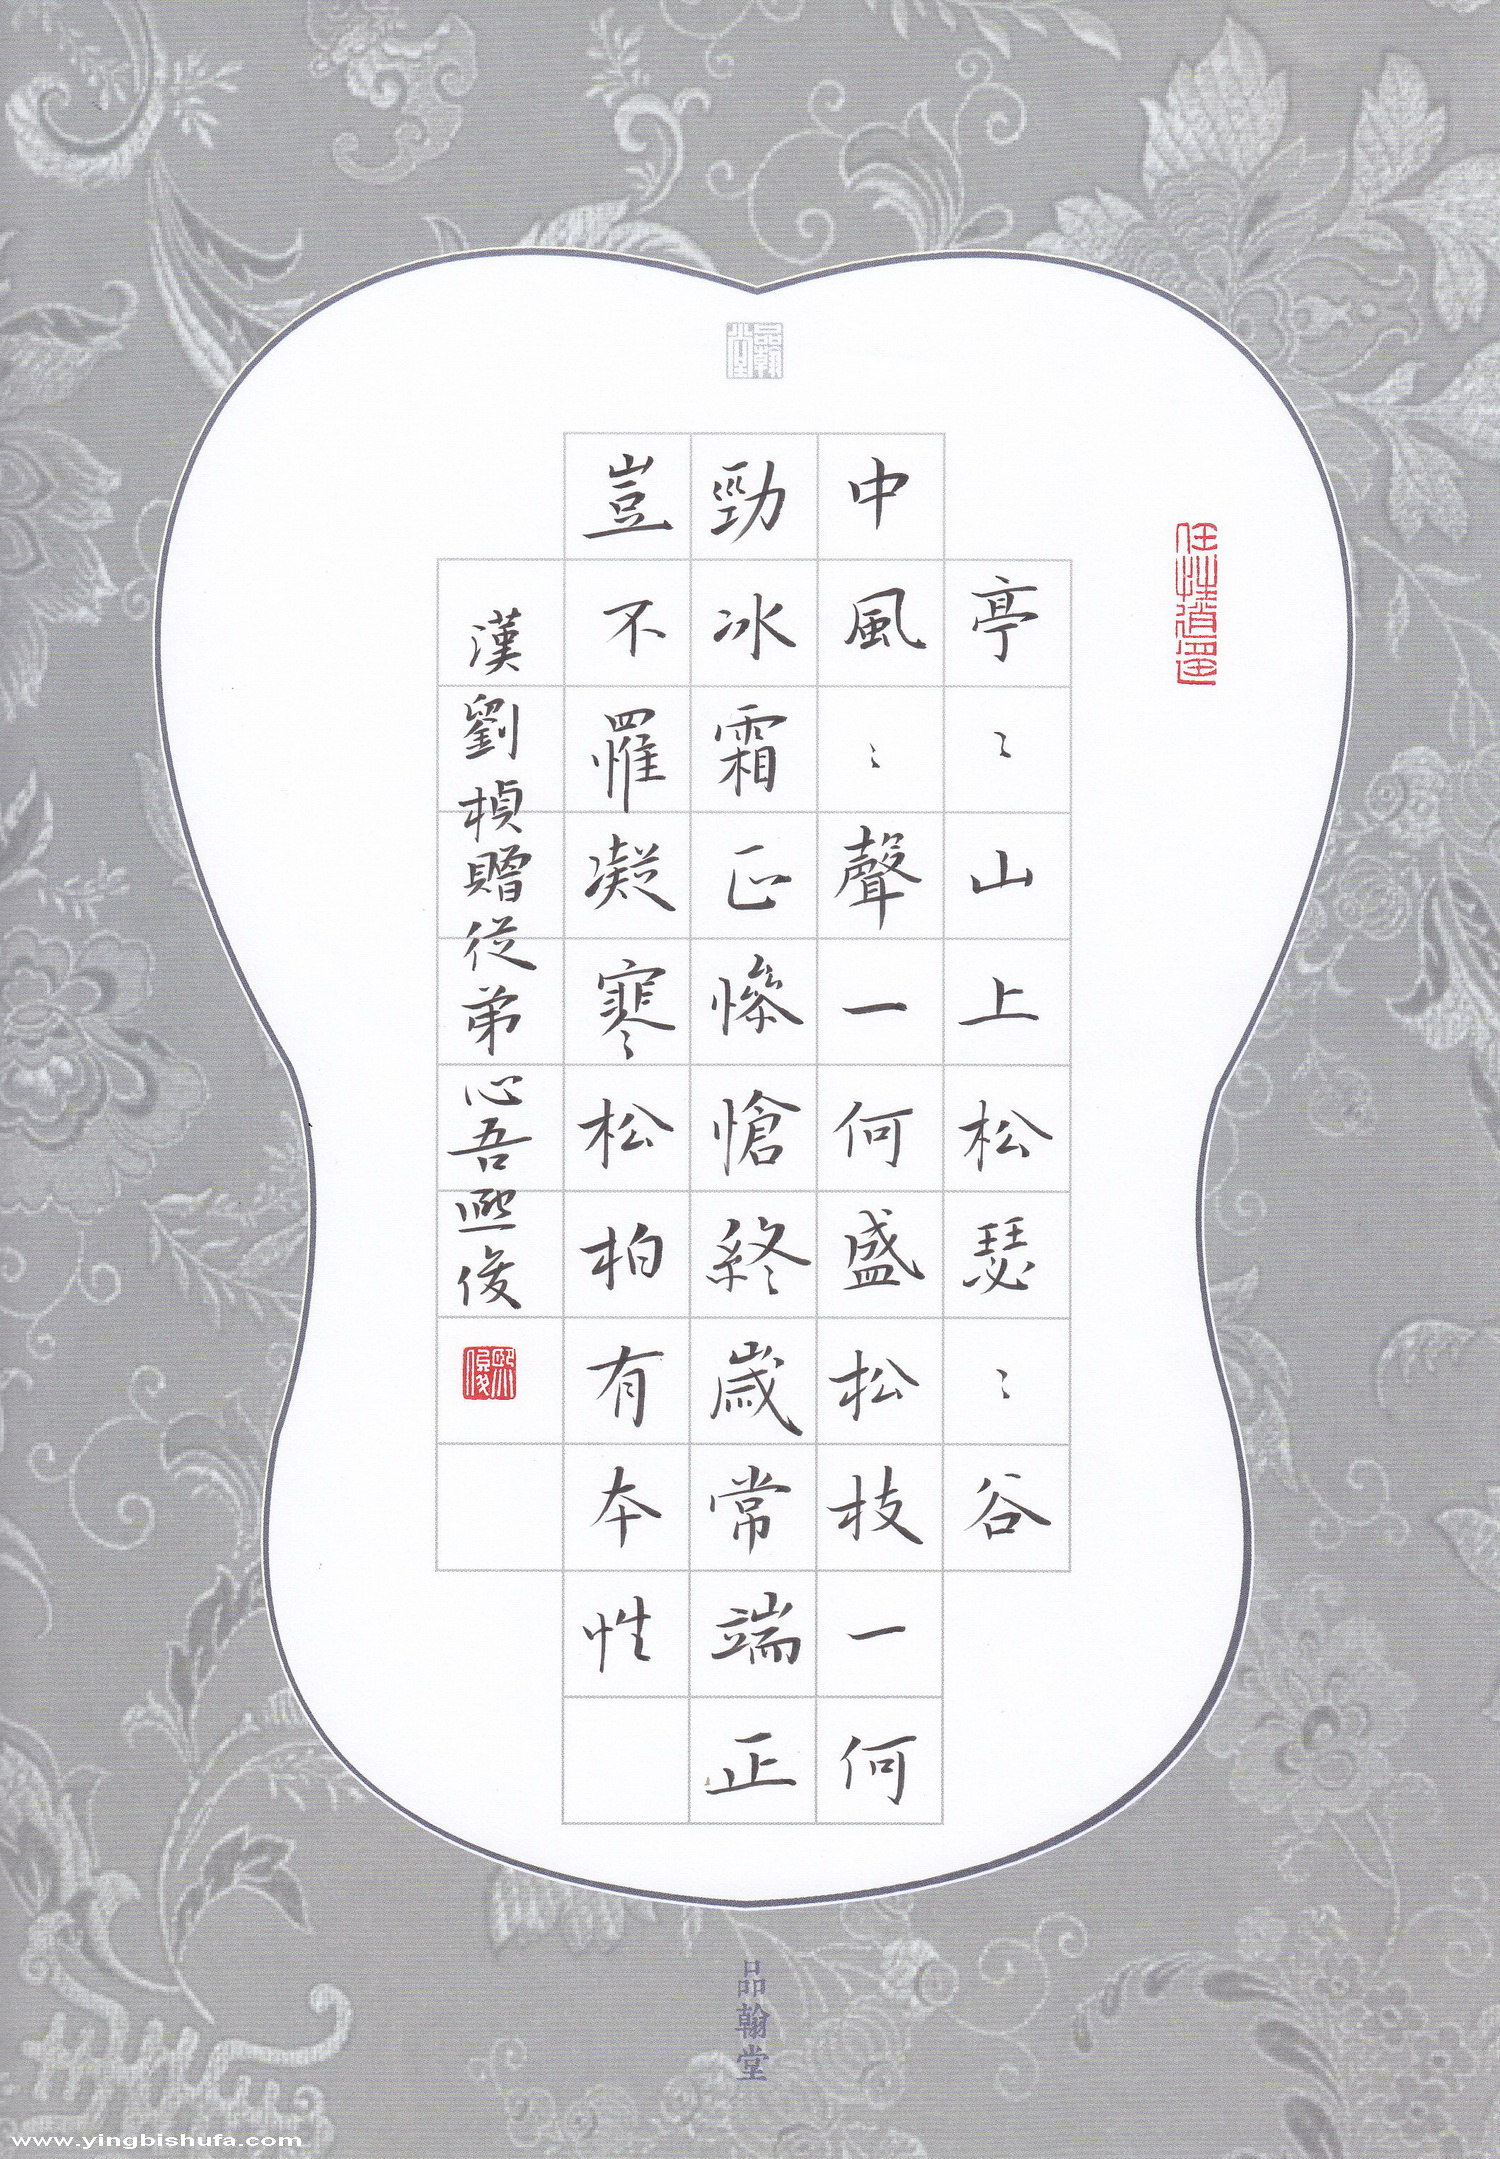 亭〻山上松瑟〻谷
中風〻聲一何盛松枝一何
勁冰霜正慘愴終歲常端正
豈不罹凝寒松柏有本性
漢劉楨贈從弟心吾熙俊
熙俊
任性逍遥
品翰堂
品翰堂
www.yingbishufa.com